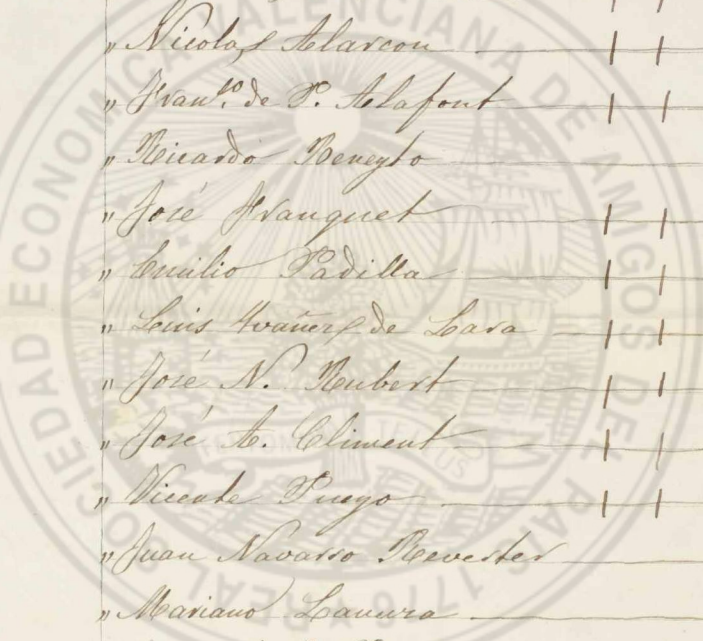 " Nicolas Alarcon
" Fran.co de P. Alafont
" Ricardo Beneyto
" José Franquet
" Emilio Padilla
" Luis Yvañez de Lara
" José N. Reubert
" José A. Climent
" Vicente Pueyo
" Juan Navarro Reverter
" Mariano
REAL SOCIEDAD ECONOMICA VALENCIANA DE AMIGOS DEL PAIS 1776